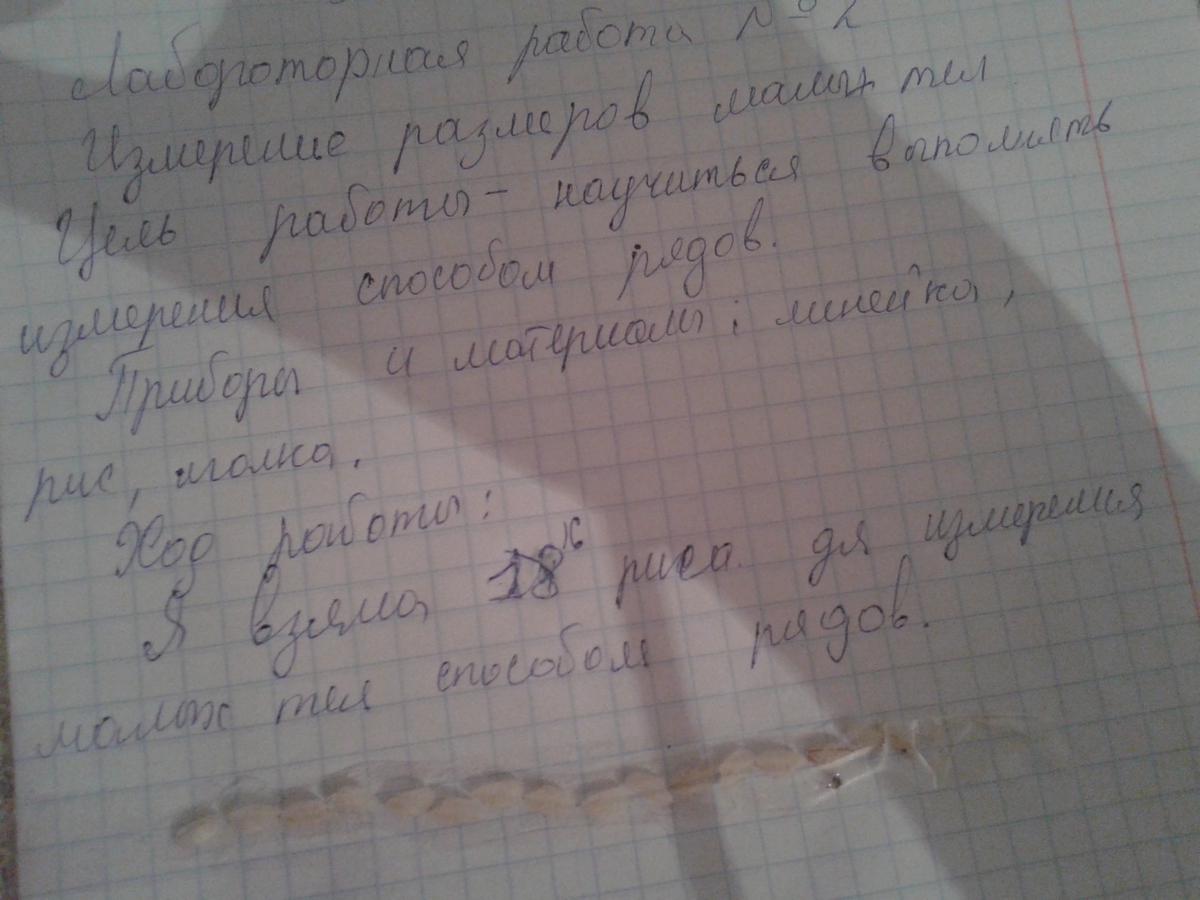 Лабороторная работа № 2
Измерение размеров малых тел
Цель работы - научиться выполнять
измерения способом рядов.
Приборы и материалы: линейка,
рис, иголка.
Ход работы:
Я взяла 16 риса для измерения
малых тел способом рядов.